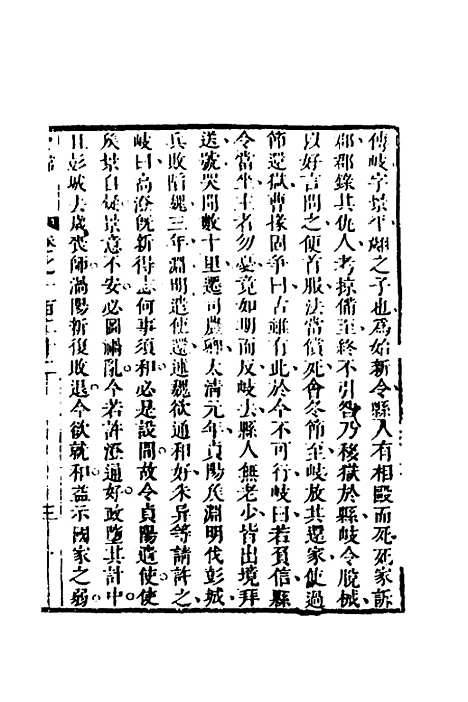 傅岐字景平翽之子也為始新令縣人有相毆而死死家訴
郡郡錄其仇人考掠備至終不引咎乃移獄於縣岐令脫械
以好言問之便首服法當償死會冬節至岐放其還家使過
節還獄曹掾固爭曰古雖有此於今不可行岐曰若負信縣
令當坐主者勿憂竟如期而反岐去縣人無老少皆出境拜
送號哭聞數十里遷司農卿太清元年貞陽侯淵明伐彭城
兵敗陷魏三年淵明遣使還述魏欲通和好朱异等請許之
岐曰高澄旣新得志何事須和必是設間故令貞陽遣使使
侯景自疑景意不安必圖禍亂今若許澄通好政墮其計中
且彭城去歲喪師渦陽新復敗退今欲就和益示國家之弱